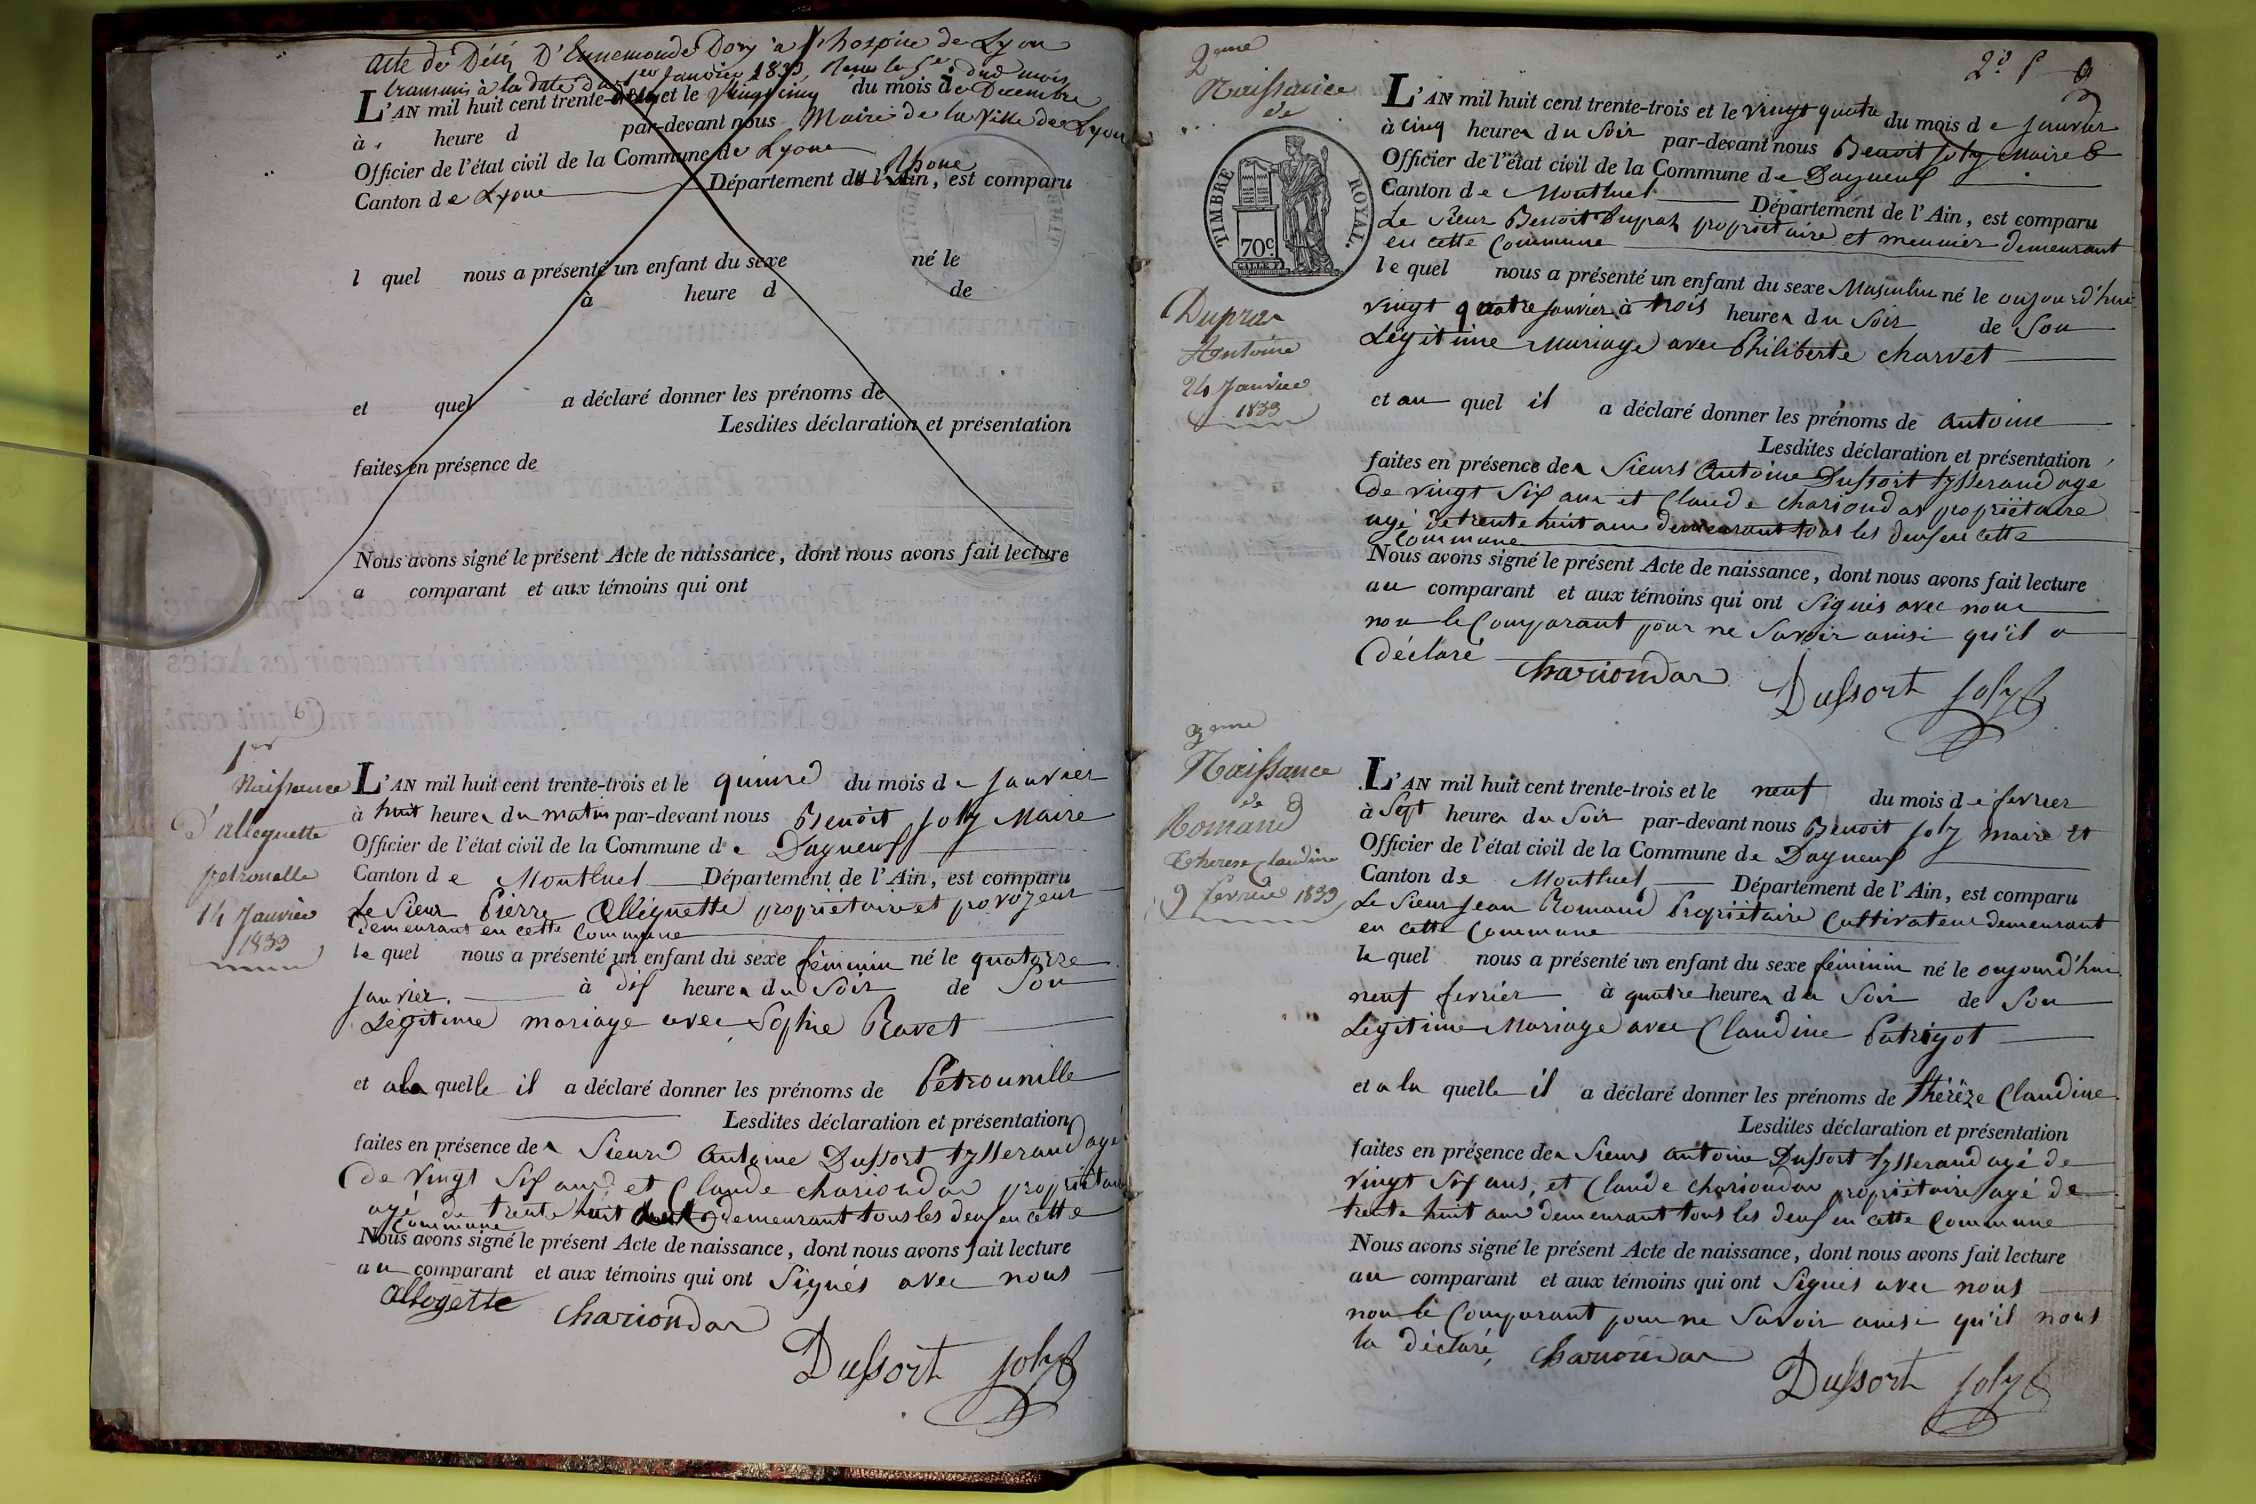 Acte de Décès D'Ennemonde Dory à l'hospice de Lyon
transmis à la date du 1er Janvier 1833
L'AN mil huit cent trente- et le vingt cinq du mois de Decembre
à heure d par-devant nous Maire de la Ville de Lyon
Officier de l'état civil de la Commune de Lyon
Canton de Lyon Département du Rhone l'Ain, est comparu
l quel nous a présenté un enfant du sexe né le
à heure d de
et quel a déclaré donner les prénoms de
Lesdites déclaration et présentation
faites en présence de
Nous avons signé le présent Acte de naissance, dont nous avons fait lecture
a comparant et aux témoins qui ont
1er
Naissance
d'alleguette
petronelle
14 Janvier
1833
L'AN mil huit cent trente-trois et le quinze du mois de Janvier
à huit heures du matin par-devant nous Benoit Joly Maire
Officier de l'état civil de la Commune de Dagneux
Canton de Montluel Département de l'Ain, est comparu
Le Sieur Pierre Alléguette propriétaire et
demeurant en cette Commune
le quel nous a présenté un enfant du sexe féminin né le quatorze
Janvier à dix heures du Soir de Son
Légitime mariage avec Sophie Ravet
et a la quelle il a déclaré donner les prénoms de Petrounille
Lesdites déclaration et présentation
faites en présence des Sieurs Antoine Dussort tysserand agé
de vingt Six ans et Claude Chariondas propriétaire
agé de trente huit demeurant tous les deux en cette
Commune
Nous avons signé le présent Acte de naissance, dont nous avons fait lecture
au comparant et aux témoins qui ont Signés avec nous
Allogette Chariondas
Dussort Joly
2eme
Naissance
de
Dupras
Antoine
24 Janvier
1833
TIMBRE ROYAL.
70c.
L'AN mil huit cent trente-trois et le vingt quatre du mois de Janvier
à cinq heures du Soir par-devant nous Benoit Joly Maire &
Officier de l'état civil de la Commune de Dagneux
Canton de Montluel Département de l'Ain, est comparu
Le Sieur Benoit Dupras propriétaire et meunier demeurant
en cette Commune
le quel nous a présenté un enfant du sexe Masculin né le aujourd'hui
vingt quatre Janvier à trois heures du Soir de Son
Légitime Mariage avec Philiberte Charvet
et au quel il a déclaré donner les prénoms de Antoine
Lesdites déclaration et présentation
faites en présence des Sieurs Antoine Dussort tysserand agé
de vingt Six ans et Claude Chariondas propriétaire
agé de trente huit ans demeurant tous les deux en cette
Commune
Nous avons signé le présent Acte de naissance, dont nous avons fait lecture
au comparant et aux témoins qui ont Signés avec nous
non le Comparant pour ne Savoir ainsi qu'il a
déclaré Chariondas
Dussort Joly
3eme
Naissance
de
Romand
Therese Claudine
9 février 1833
L'AN mil huit cent trente-trois et le neuf du mois de fevrier
à Sept heures du Soir par-devant nous Benoit Joly maire et
Officier de l'état civil de la Commune de Dagneux
Canton de Montluel Département de l'Ain, est comparu
Le Sieur Jean Romand Propriétaire Cultivateur demeurant
en cette Commune
le quel nous a présenté un enfant du sexe féminin né le aujourd'hui
neuf fevrier à quatre heures du Soir de Son
Légitime Mariage avec Claudine Patrigot
et a la quelle il a déclaré donner les prénoms de thérèze Claudine
Lesdites déclaration et présentation
faites en présence des Sieurs Antoine Dussort tysserand agé de
vingt Six ans, et Claude Chariondas propriétaire agé de
trente huit ans demeurant tous les deux en cette Commune
Nous avons signé le présent Acte de naissance, dont nous avons fait lecture
au comparant et aux témoins qui ont Signés avec nous
non le Comparant pour ne Savoir ainsi qu'il nous
la déclaré, Chariondas
Dussort Joly